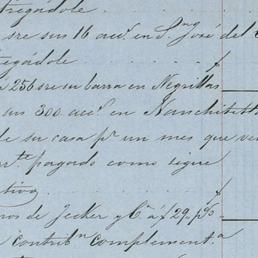 tregándole
sre sus 16 acc.s en S.n José del
tregádole
256 sre su barra en Negrillas
sus 300 acc.s en
de su casa p.r un mes que ve
pagado como sigue
tivo
ros de Jecker y C.a á f 29. p%
contrib.n complement.a